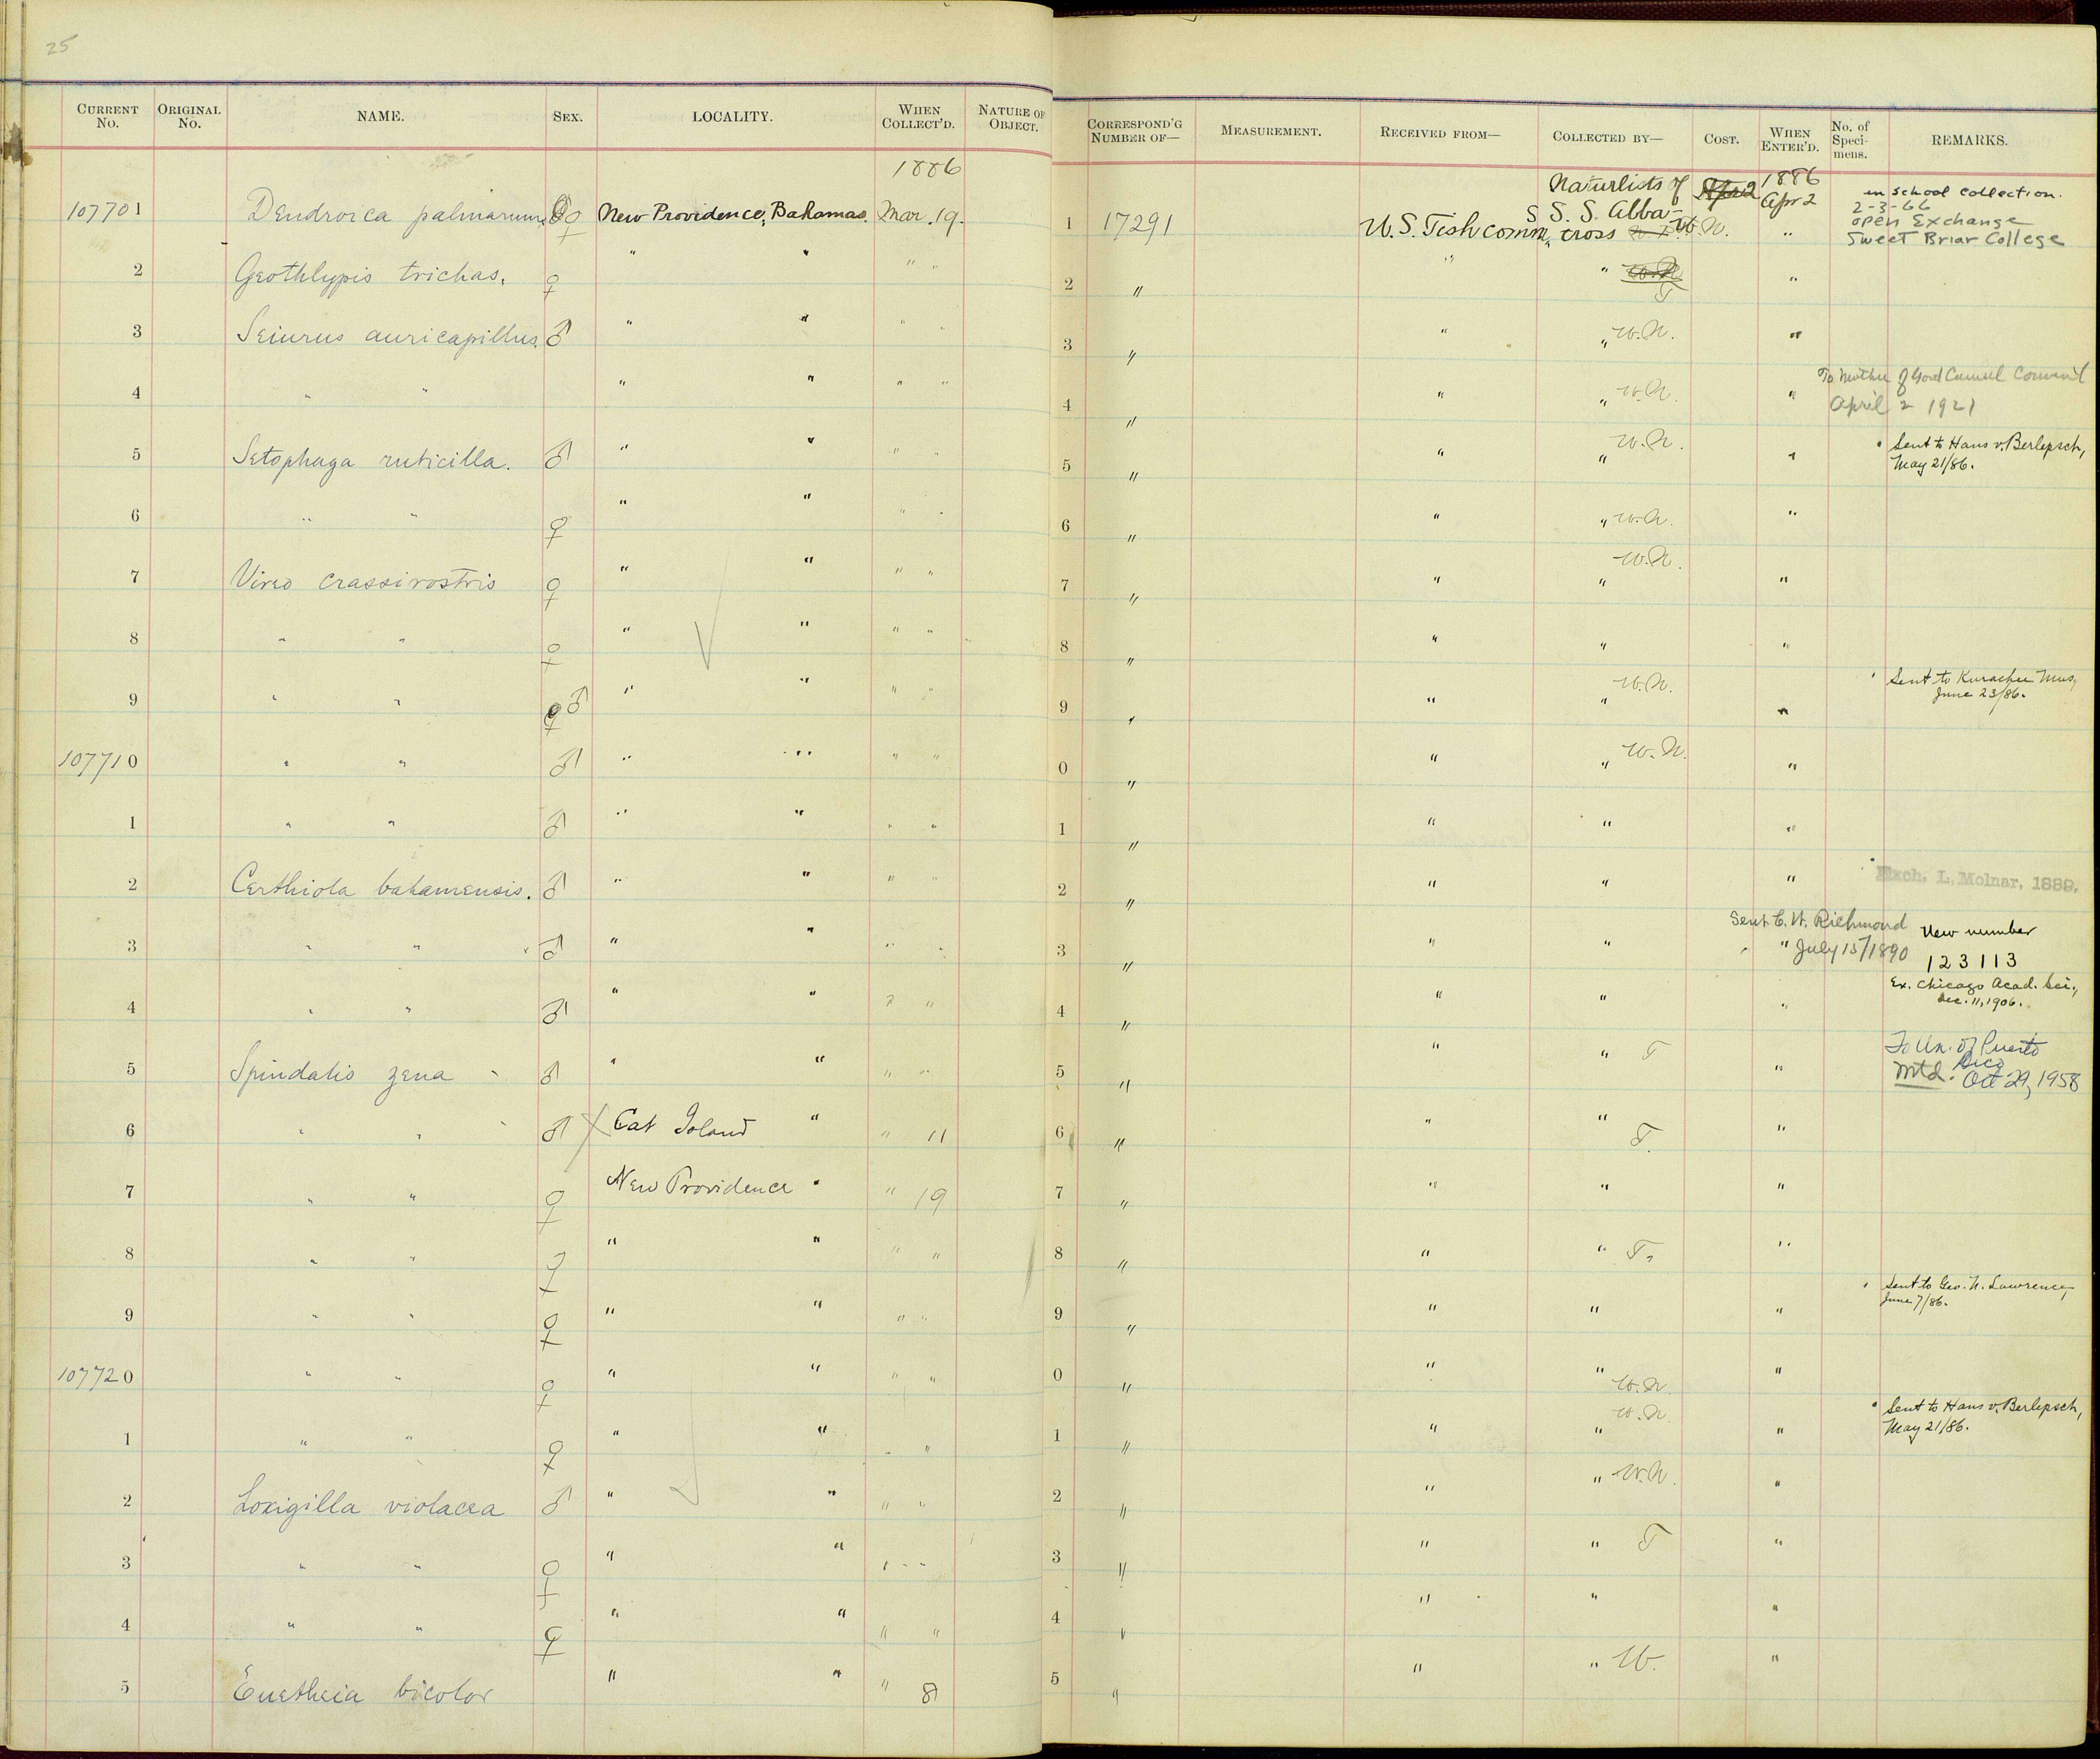 25
CURRENT No. ORIGINAL No. NAME. SEX. LOCALITY. WHEN COLLECT'D. NATURE OF OBJECT. CORRESPOND'G NUMBER OF— MEASUREMENT. RECEIVED FROM— COLLECTED BY— COST. WHEN ENTER'D. No. of Specimens. REMARKS.
1886
107701 Dendroica palmarum. ♀ New Providence, Bahamas. Mar. 19. 1 17291 U.S. Fish comm, Naturlists of S. S. S. Albatross W.N. 1886 Apr 2 in school collection. 2-3-66 open Exchange Sweet Briar College
2 Geothlypis trichas. ♀ " " " " 2 " " " T "
3 Seiurus auricapillus. ♂ " " " " 3 " " " W.N. "
4 " " " " " " 4 " " " W.N. " To Mother of God Convent April 2 1921
5 Setophaga ruticilla. ♂ " " " " 5 " " " W.N. " Sent to Hans v. Berlepsch, May 21/86.
6 " " ♀ " " " " 6 " " " W.N. "
7 Vireo crassirostris ♀ " " " " 7 " " " W.N. "
8 " " ♀ " " " " 8 " " " "
9 " " ♂ " " " " 9 " " " W.N. " Sent to Kurachee Mus, June 23/86.
107710 " " ♂ " " " " 0 " " " W.N. "
1 " " ♂ " " " " 1 " " " "
2 Certhiola bahamensis. ♂ " " " " 2 " " " " Exch. L. Molnar, 1889.
3 " " ♂ " " " " 3 " " " " Sent C. W. Richmond July 15/1890 New number 123113
4 " " ♂ " " " " 4 " " " " Ex. Chicago Acad. Sci., Dec. 11, 1906.
5 Spindalis zena ♂ " " " " 5 " " " T " To Un. of Puerto Rico Mtd. Oct 29, 1958
6 " " ♂ Cat Island " " 11 6 " " " T. "
7 " " ♀ New Providence " " 19 7 " " " "
8 " " ♀ " " " " 8 " " " T. "
9 " " ♀ " " " " 9 " " " " Sent to Geo. N. Lawrence, June 7/86.
107720 " " ♀ " " " " 0 " " " W.N. "
1 " " ♀ " " " " 1 " " " W.N. " Sent to Hans v. Berlepsch, May 21/86.
2 Loxigilla violacea ♂ " " " " 2 " " " W.N. "
3 " " ♀ " " " " 3 " " " T "
4 " " ♀ " " " " 4 " " " "
5 Euetheia bicolor " " " 8 5 " " " W. "